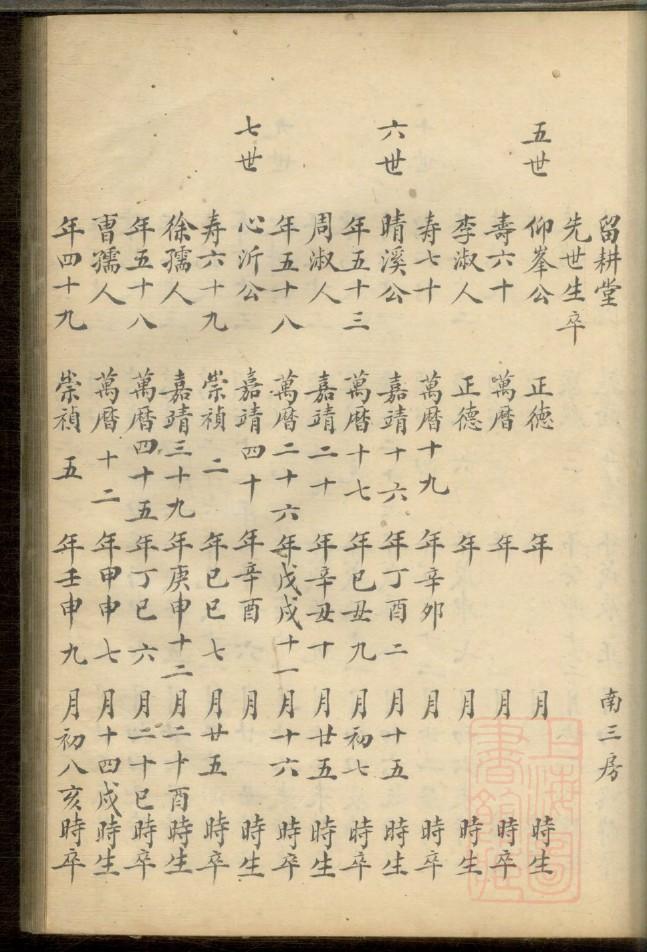 留耕堂 南三房
先世生卒
五世 仰峯公 正德 年 月 時生
壽六十 萬曆 年 月 時卒
李淑人 正德 年 月 時生
寿七十 萬曆十九年辛卯 月 時卒
六世 晴溪公 嘉靖十六年丁酉二月十五 時生
年五十三 萬曆十七年已丑九月初七 時卒
周淑人 嘉靖二十年辛丑十月廿五 時生
年五十八 萬曆二十六年戊戌十一月十六 時卒
七世 心沂公 嘉靖四十年辛酉 月 時生
寿六十九 崇禎二年已巳七月廿五 時卒
徐孺人 嘉靖三十九年庚申十二月二十酉時生
年五十八 萬曆四十五年丁巳六月二十巳時卒
曹孺人 萬曆十二年甲申七月十四戌時生
年四十九 崇禎五年壬申九月初八亥時卒
上海圖書館藏